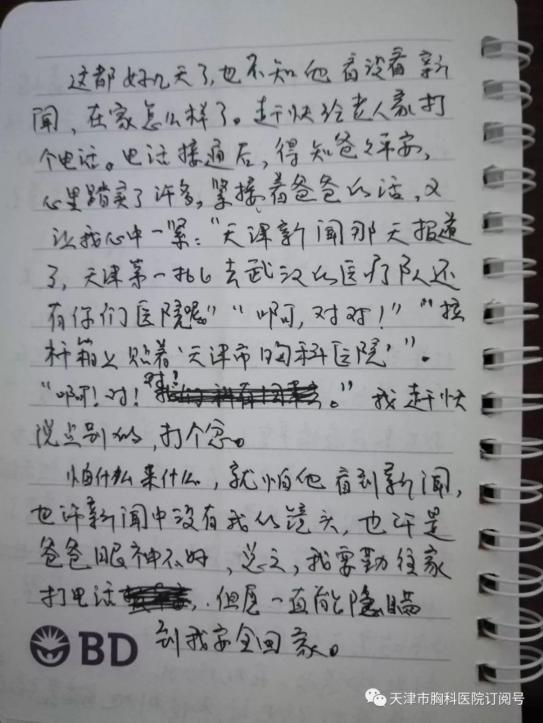 这都好几天了,也不知他看没看新
闻,在家怎么样了。赶快给老人家打
个电话。电话接通后,得知爸爸平安,
心里踏实了许多,紧接着爸爸的话,又
让我心中一紧:“天津新闻那天报道
了,天津第一批去武汉的医疗队还
有你们医院呢”“啊,对对!”“拉
杆箱上贴着‘天津市胸科医院’”。
“啊!对!对!。”我赶快
说点别的,打个岔。
怕什么来什么,就怕他看到新闻,
也许新闻中没有我的镜头,也许是
爸爸眼神不好,总之,我要勤往家
打电话,但愿一直能隐瞒
到我安全回家。
BD
天津市胸科医院订阅号